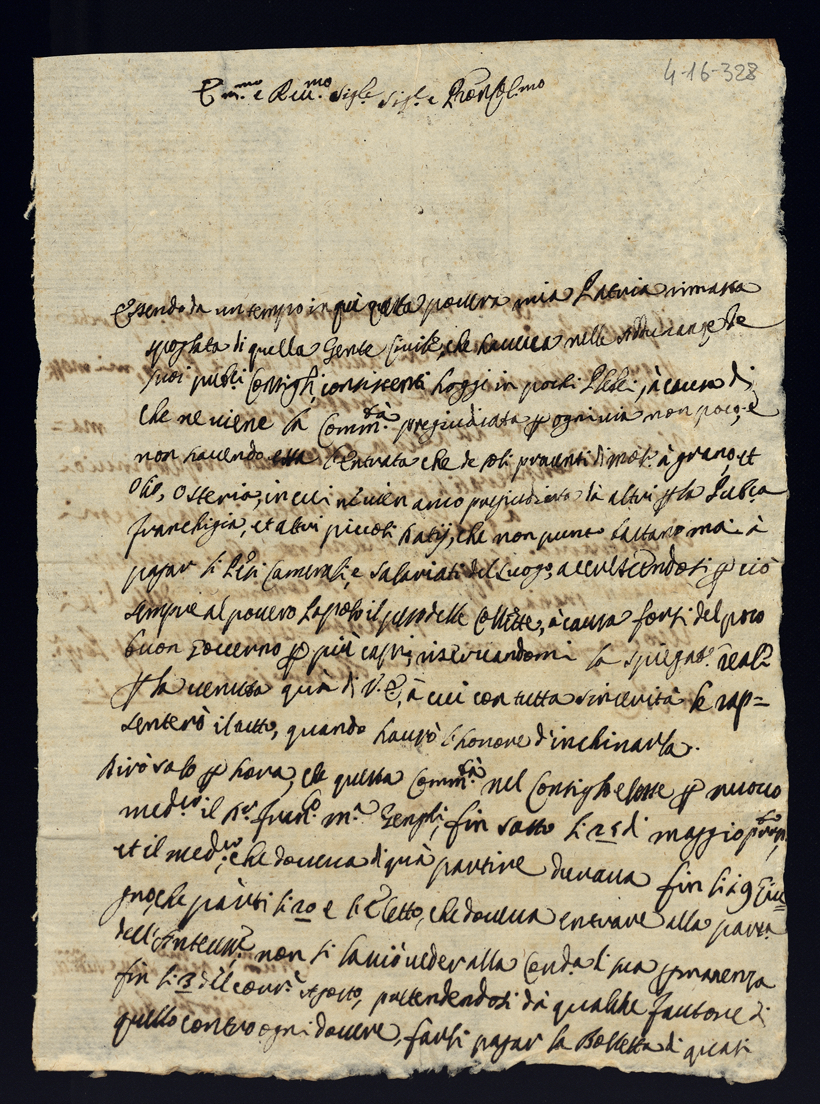 4-16-328
Em.mo e Rev.mo Sig.re Sig.re e Pron Col.mo
Essendo da un tempo in quà questa povera mia Patria rimasta
spogliata di quella Gente Civile, che haveva nelle Adunanze de
suoi publici Consigli, consistenti hoggi in pochi Plebei, à causa di
che ne viene la Comm.tà pregiudicata p ogni via non poco, e
non havendo essa d'Entrata che de soli proventi di mol. à grano, et
Olio, Osteria, in cui ne vien anco pregiudicata dà altri p la Publica
franchigia, et altri piccoli Datij, che non punto bastano mai à
pagar li Pesi Camerali, e Salariati del Luogo, accrescendosi p ciò
sempre al povero Popolo il peso delle Collette, à causa forsi del poco
buon governo p più capi, riservandomi la spiegat.e reale
p la venuta quà di V. E., à cui con tutta sincerità le rap=
senterò il tutto, quando haurò l'honore d'inchinarla.
Dirò solo p hora, che questa Comm.tà nel Consiglio elesse p nuovo
med.co il Sr. Fran.co M.a Gengli, fin sotto li 25 di maggio pross.,
et il med.co, che doveva di quà partire durava fin li 19 Giu=
gno, che partì li 20 e l'Eletto, che doveva entrare alla parten.
dell'Antecess.e non si lasciò veder alla Cond.a di sua permanenza
fin li 3 del corr.e Agosto, pretendendosi dà qualche fautore di
quello contro ogni dovere, farli pagar la Bolletta di quasi